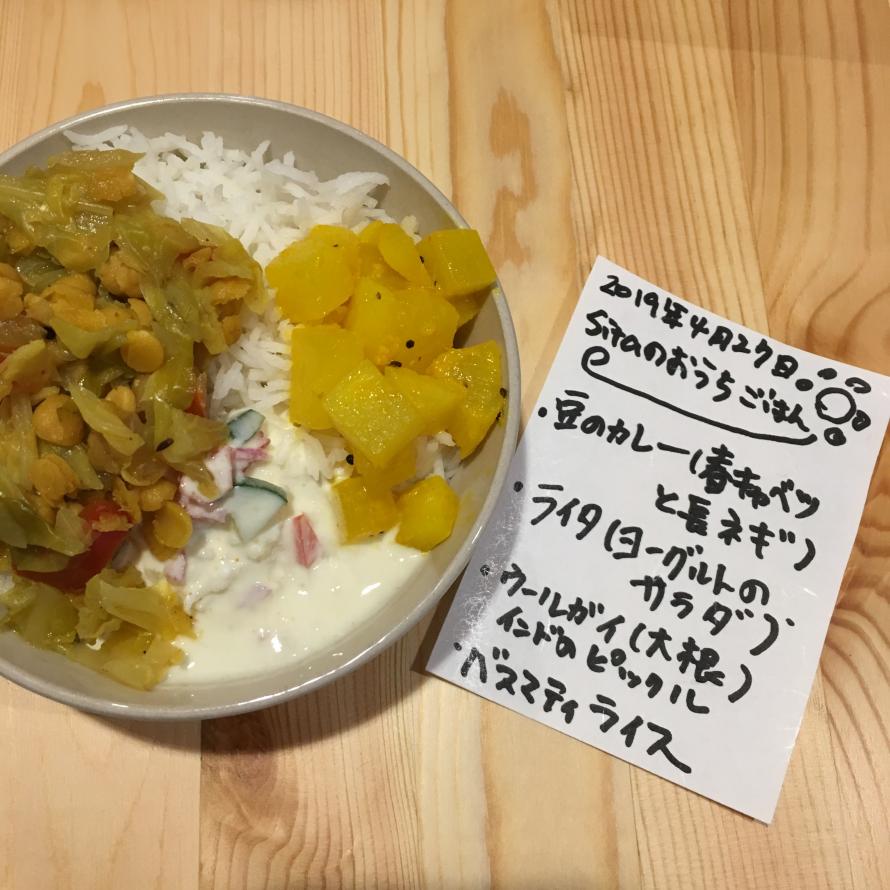 2019年4月27日
Sitaのおうちごはん
・豆のカレー(春キャベツ
と長ネギ)
・ライタ(ヨーグルトの
サラダ)
・ウールガイ(大根)
インドのピックル
・バスマティライス